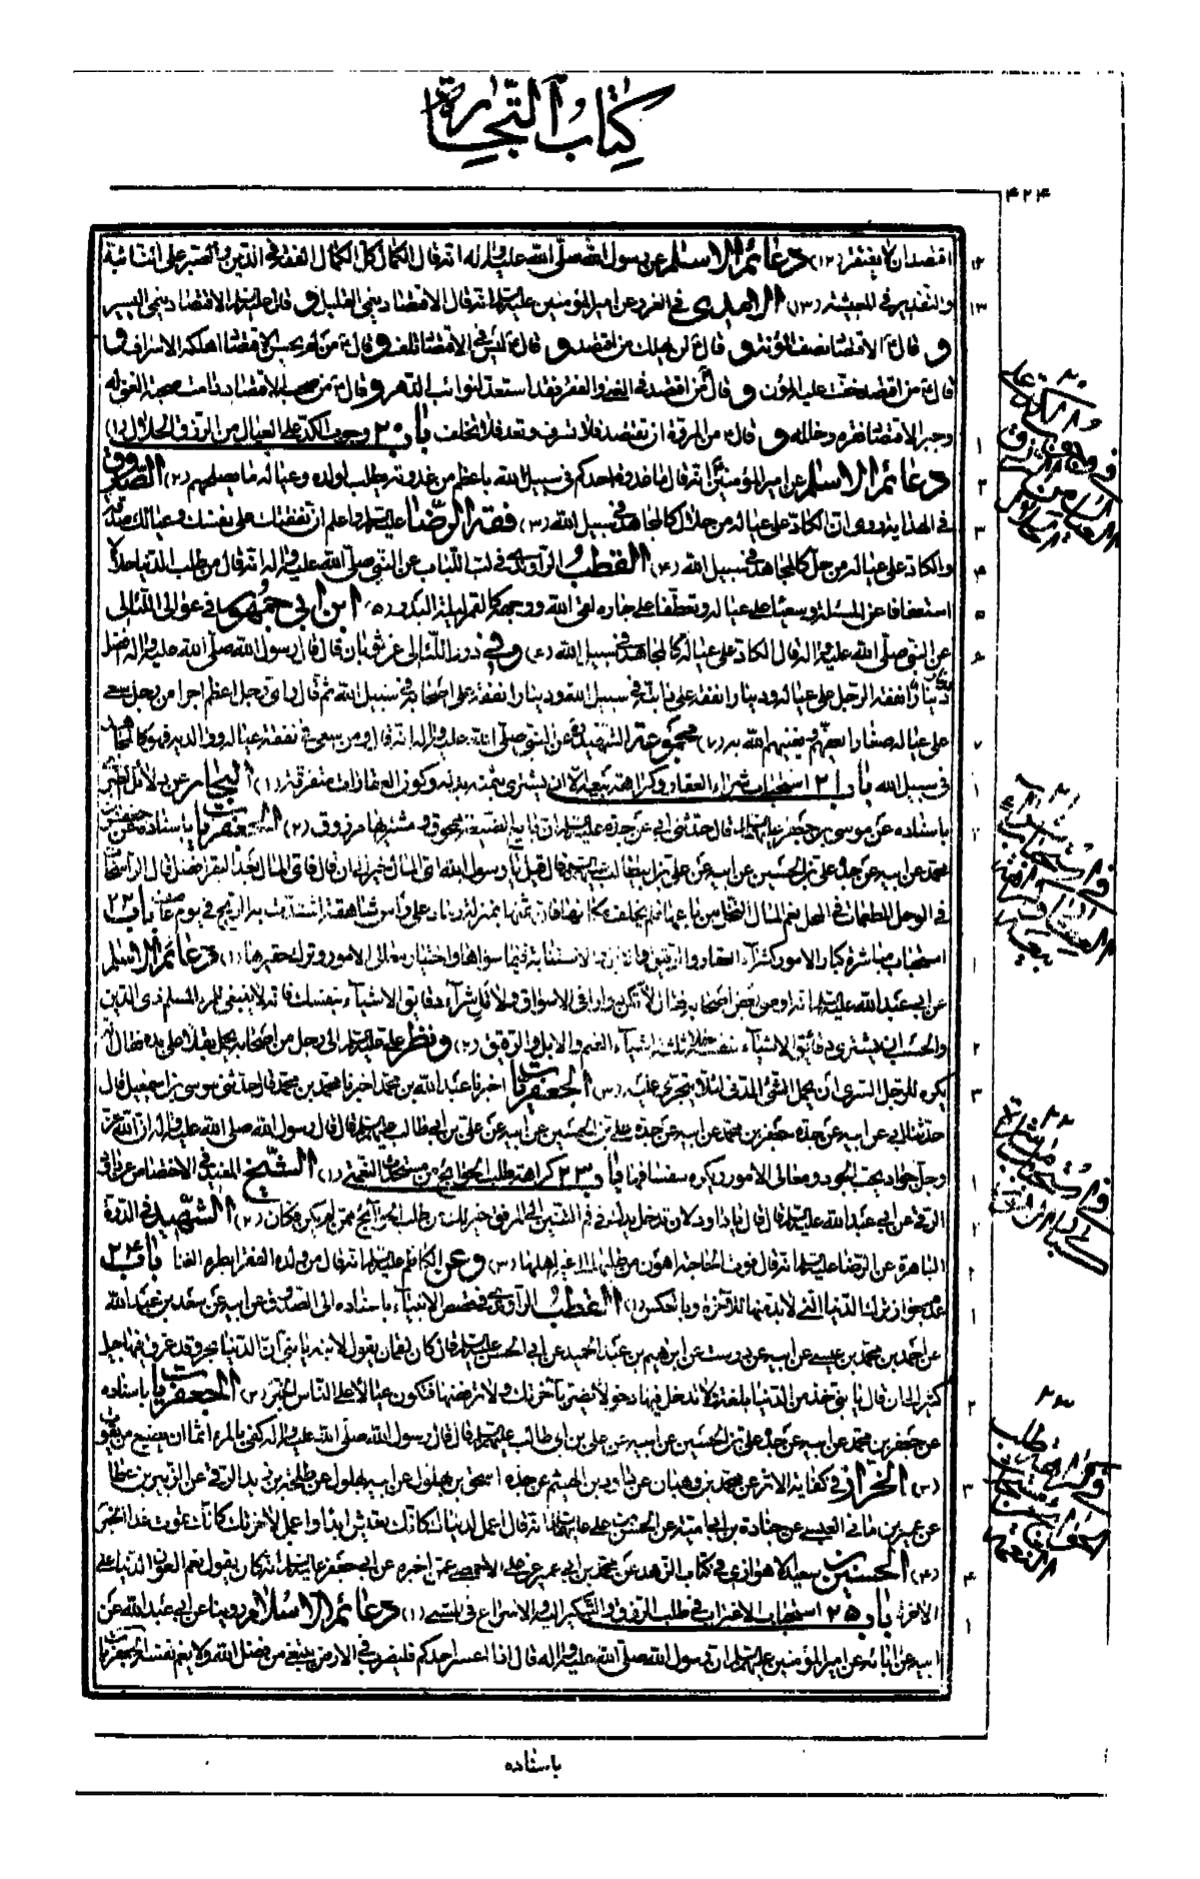 كتاب التجارة
۴۲۴
اقتصد ان لا يفتقر (۱۲) دعائم الاسلام عن رسول الله صلى الله عليه واله انه قال الكمال كل الكمال الفقه في الدين والصبر على النائبة
والتقدير في المعيشة (۱۳) الامدي في الغرر عن امير المؤمنين عليه السلام انه قال الاقتصاد ينمى القليل و قال عليه السلام الاقتصاد ينمى اليسير
و قال الاقتصاد نصف المؤنة و قال لن يهلك من اقتصد و قال ليس في الاقتصاد تلف و قال من لم يحسن الاقتصاد اهلكه الاسراف و
قال من اقتصد خفت عليه المؤن و قال من اقتصد في الغنى والفقر فقد استعد لنوائب الدهر و قال من صحب الاقتصاد دامت صحبة الغنى له
وجبر الاقتصاد فقره وخلله و قال من المروة ان تقتصد فلا تسرف وتعد فلا تخلف باب ۲۰ وجوب الكد على العيال من الرزق الحلال (۱)
دعائم الاسلام عن امير المؤمنين انه قال ما غدوة احدكم في سبيل الله باعظم من غدوته يطلب لولده وعياله ما يصلحهم (۲) الصدوق
في الهداية روى ان الكاد على عياله من حلال كالمجاهد في سبيل الله (۳) فقه الرضا عليه السلام واعلم ان نفقتك على نفسك وعيالك صدقة
والكاد على عياله من حل كالمجاهد في سبيل الله (۴) القطب الراوندي في لب اللباب عن النبي صلى الله عليه واله انه قال من طلب الدنيا حلالا
استعفافا عن المسئلة وسعيا على عياله وتعطفا على جاره لقى الله ووجهه كالقمر ليلة البدر (۵) ابن ابي جمهور في عوالي اللئالى
عن النبي صلى الله عليه واله قال الكاد على عياله كالمجاهد في سبيل الله (۶) وفي درر اللئالى عن ثوبان قال قال رسول الله صلى الله عليه واله افضل
دينار انفقه الرجل على عياله ودينار انفقه على دابته في سبيل الله ودينار انفقه على اصحابه في سبيل الله ثم قال واي رجل اعظم اجرا من رجل سعى
على عياله صغارا يعفهم ويغنيهم الله به (۷) مجموعة الشهيد عن النبي صلى الله عليه واله انه قال ومن سعى في نفقة عياله ووالديه فهو كالمجاهد
في سبيل الله باب ۲۱ استحباب شراء العقار وكراهة بيعه الا ان يشترى بثمنه بدله وكون العقارات متفرقة (۱) البحار عن
باسناده عن موسى بن جعفر عليه السلام قال حدثني ابي عن جده عليه السلام ان بايع الضيعة ممحوق ومشتريها مرزوق (۲) الجعفريات باسناده عن جعفر بن
محمد عن ابيه عن جده علي بن الحسين عن ابيه عن علي بن ابيطالب عليهم السلام قال قيل يا رسول الله اى المال خير
في الوحل المطعمات في المحل نعم المال النخل من باعها فلم يخلف مكانها فان ثمنها بمنزلة رماد على رأس شاهقة اشتدت به الريح في يوم عاصف باب ۲۲
استحباب مباشرة كبار الامور كشراء العقار والرقيق والابل والاستنابة فيما سواها واختيار معالى الامور وترك حقيرها (۱) دعائم الاسلام
عن ابي عبد الله عليه السلام انه اوصى بعض اصحابه فقال لا تكن دوارا في الاسواق ولا تل شراء دقايق الاشياء بنفسك فانه لا ينبغي للمرء المسلم ذى الدين
والحسب ان يشترى دقائق الاشياء بنفسه خلا ثلاثة اشياء الغنم والابل والرقيق (۲) ونظر عليه السلام الى رجل من اصحابه يحمل بقلا على يده فقال انه
يكره للرجل السرى ان يحمل الشئ الدنى لئلا يجترى عليه (۳) الجعفريات اخبرنا عبد الله بن محمد اخبرنا محمد بن محمد قال حدثني موسى بن اسمعيل قال
حدثنا ابي عن ابيه عن جده جعفر بن محمد عن ابيه عن جده علي بن الحسين عن ابيه عن علي بن ابي طالب عليهم السلام قال قال رسول الله صلى الله عليه واله ان الله عز
وجل جواد يحب الجود ومعالى الامور ويكره سفسافها باب ۲۳ كراهة طلب الحوائج من مستحدث النعمة (۱) الشيخ المفيد في الاختصاص عن داود
الرقي عن ابي عبد الله عليه السلام قال قال يا داود لان تدخل يدك في فم التنين الى المرفق خير لك من طلب الحوائج ممن لم يكن فكان (۲) الشهيد في الدرة
الباهرة عن الرضا عليه السلام انه قال فوت الحاجة اهون من طلبها الى غير اهلها (۳) وعن الكاظم عليه السلام انه قال من ولده الفقر ابطره الغنا باب ۲۴
عدم جواز ترك الدنيا التي لابد منها للاخرة وبالعكس (۱) القطب الراوندي في قصص الانبياء باسناده الى الصدوق عن ابيه عن سعد بن عبد الله
عن احمد بن محمد بن عيسى عن ابيه عن درست عن ابرهيم بن عبد الحميد عن ابي الحسن عليه السلام قال كان لقمان يقول لابنه يا بنى ان الدنيا بحر وقد غرق فيها جيل
كثير الى ان قال يا بنى خذ من الدنيا بلغة ولا تدخل فيها دخولا يضر باخرتك ولا ترفضها فتكون عيالا على الناس الخبر (۲) الجعفريات باسناده
عن جعفر بن محمد عن ابيه عن جده علي بن الحسين عن ابيه عن علي بن ابي طالب عليهم السلام قال قال رسول الله صلى الله عليه واله كفى بالمرء اثما ان يضيع من يقوت
(۳) الخزاز في كفاية الاثر عن محمد بن وهبان عن داود بن الهيثم عن جده اسحق بن بهلول عن ابيه بهلول عن طلحة بن زيد الرقي عن الزبير بن عطا
عن عمير بن هاني العبسى عن جنادة بن ابي امية عن الحسن بن علي عليهما السلام انه قال اعمل لدنياك كانك تعيش ابدا واعمل لاخرتك كانك تموت غدا الخبر
(۴) الحسين بن سعيد الاهوازي في كتاب الزهد عن محمد بن ابي عمير عن علي الاحمصى عمن اخبره عن ابي جعفر عليه السلام انه كان يقول نعم العون الدنيا على
الاخرة باب ۲۵ استحباب الاغتراب في طلب الرزق والتبكير اليه والاسراع في المشى (۱) دعائم الاسلام روينا عن ابي عبد الله عن
ابيه عن ابائه عن امير المؤمنين عليه السلام ان رسول الله صلى الله عليه واله قال اذا اعسر احدكم فليضرب في الارض يبتغى من فضل الله ولا يغم نفسه الجعفريات
باسناده